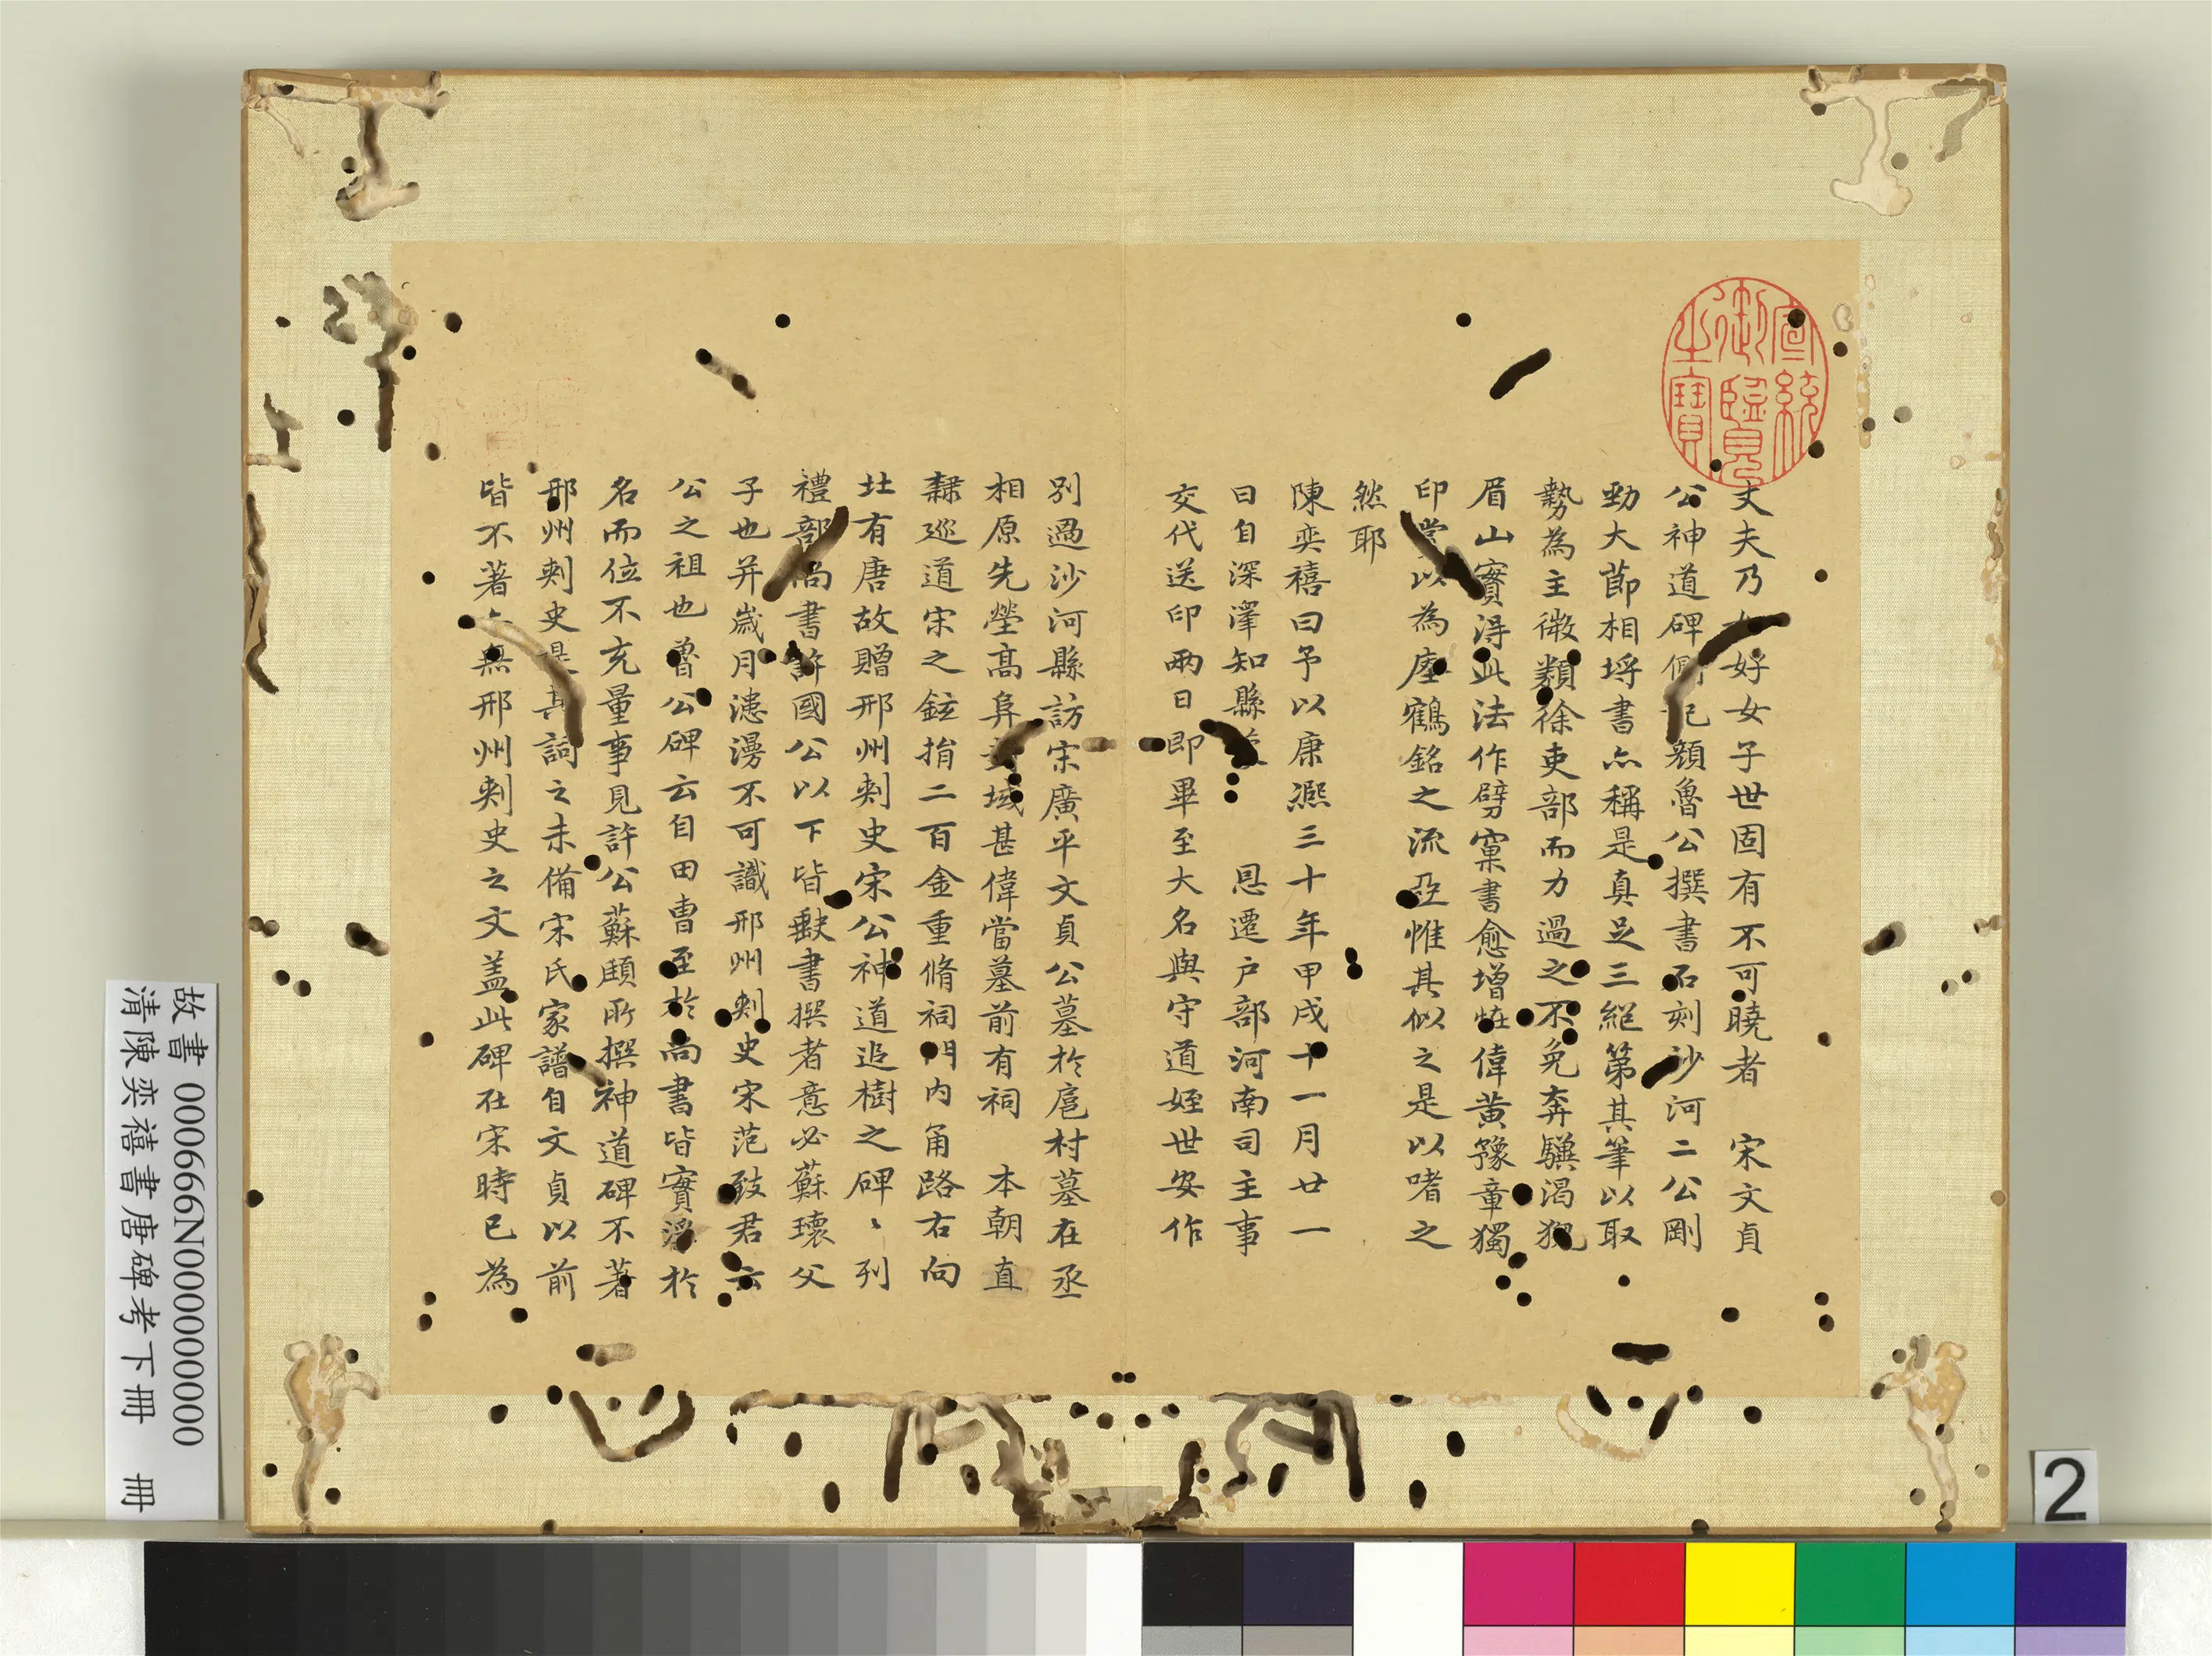 宣統御覽之寶
丈夫乃 好女子世固有不可曉者 宋文貞
公神道碑側記顏魯公撰書石刻沙河二公剛
勁大節相埒書亦稱是真足三絕第其筆以取
勢為主微類徐吏部而力過之不免奔驥渴猊
眉山實得此法作劈窠書愈增雄偉黃豫章獨
印 以為瘞鶴銘之流亞惟其似之是以嗜之
然耶
陳奕禧曰予以康熙三十年甲戌十一月廿一
日自深澤知縣 恩遷戶部河南司主事
交代送印兩日即畢至大名與守道姪世安作
別過沙河縣訪宋廣平文貞公墓於扈村墓在丞
相原先塋高阜 域甚偉當墓前有祠 本朝直
隸巡道宋之鋐捐二百金重脩祠門內甬路右向
北有唐故贈邢州刺史宋公神道追樹之碑〻列
禮部尚書許國公以下皆缺書撰者意必蘇瓌父
子也并歲月漶漫不可識邢州刺史宋范致君云
公之祖也魯公碑云自田曹至於尚書皆實浮於
名而位不充量事見許公蘇頲所撰神道碑不著
邢州刺史是其詞之未備宋氏家譜自文貞以前
皆不著 無邢州刺史之文蓋此碑在宋時已為
故書 000666N000000000
清陳奕禧書唐碑考下冊 冊
2